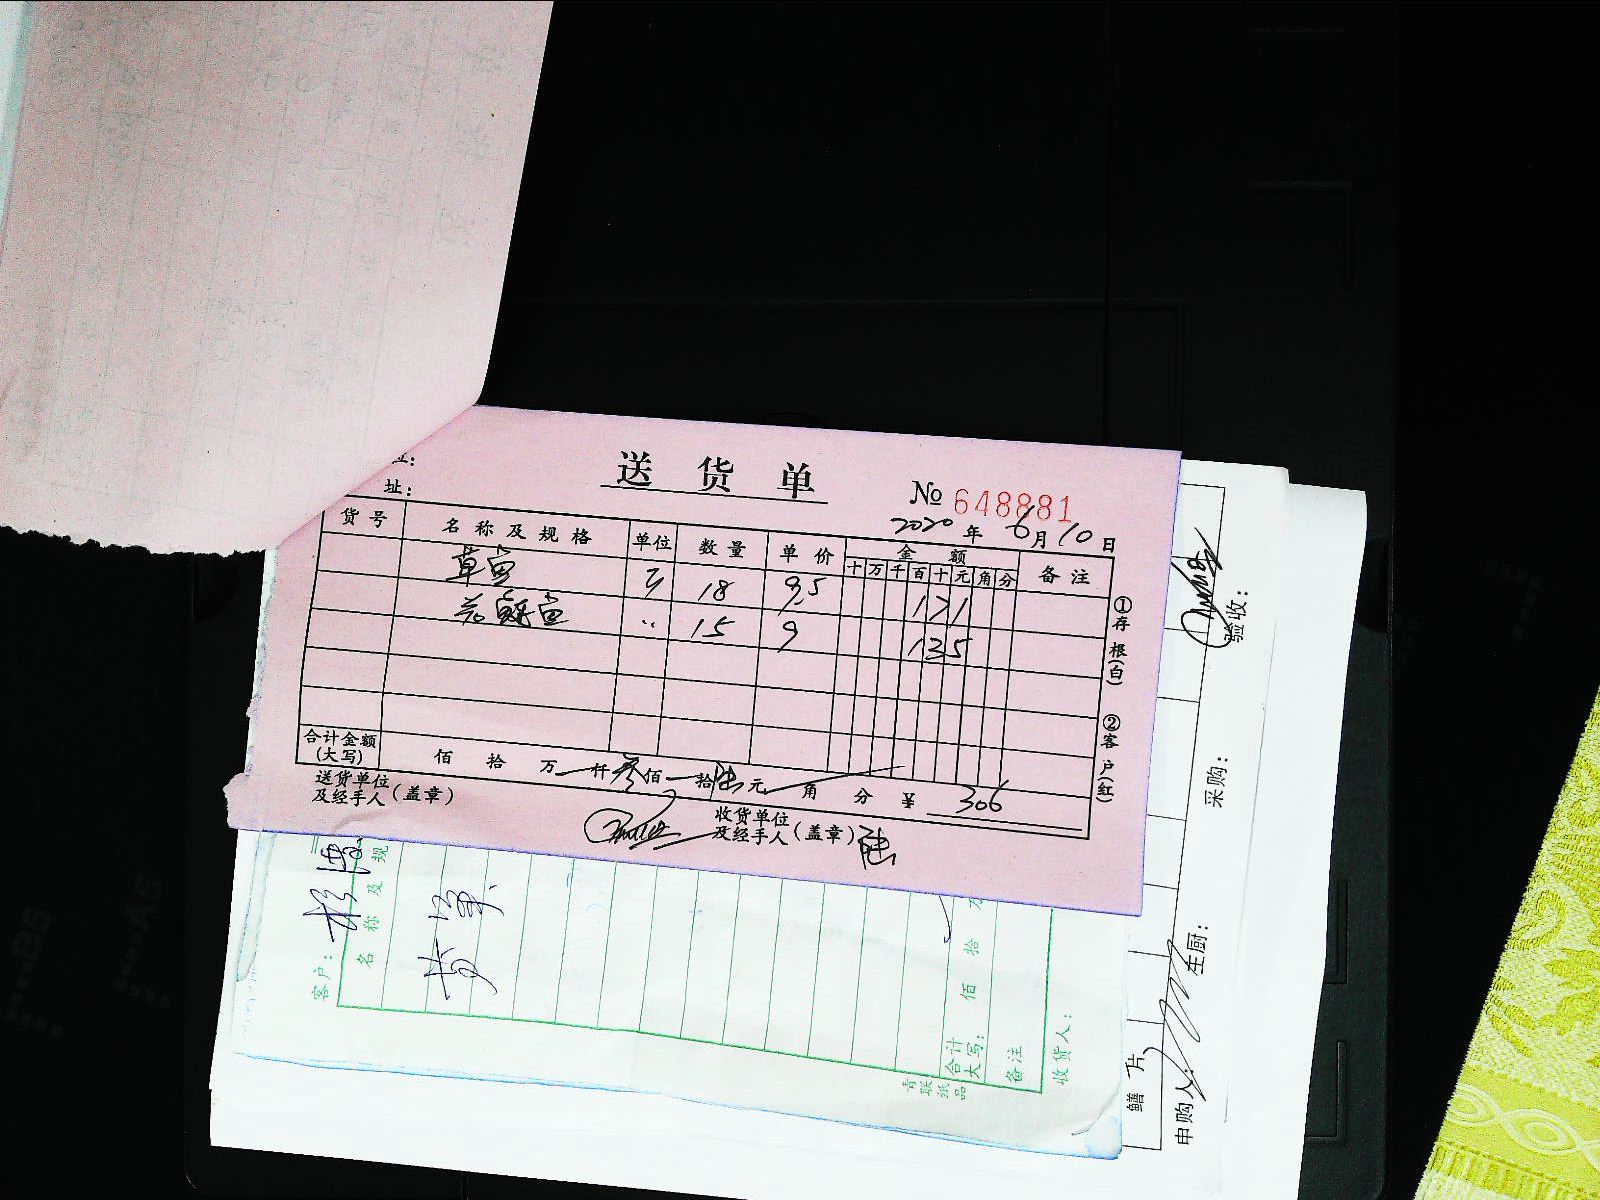 送货单
№ 648881
址：
2020年6月10日
货号 名称及规格 单位 数量 单价 金额 备注
十 万 千 百 十 元 角 分
草鱼 18 9.5 171
15 9 135
合计金额(大写) 佰 拾 万 仟叁佰 拾陆元 角 分 ¥ 306
送货单位及经手人(盖章)
收货单位及经手人(盖章)
①存根(白) ②客户(红)
客户：
名称及规
合计大写： 佰 拾
备注
收货人：
青联纸品
鳝片
申购人：
主厨：
采购：
验收：
B5
A5